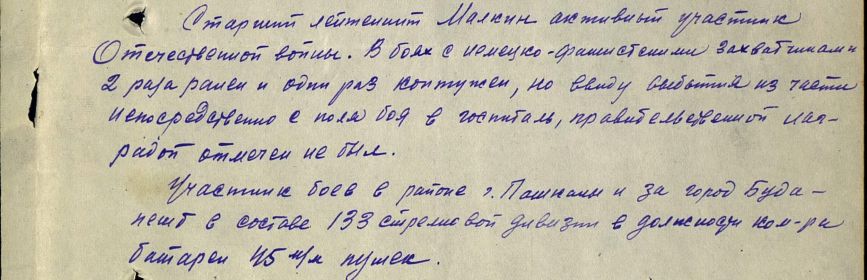 Старший лейтенант Малкин активный участник
Отечественной войны. В боях с немецко-фашистскими захватчиками
2 раза ранен и один раз контужен, но ввиду выбытия из части
непосредственно с поля боя в госпиталь, правительственной наг-
радой отмечен не был.
Участник боев в районе г. Пашканы и за город Буда-
пешт в составе 133 стрелковой дивизии в должности ком-ра
батареи 45 м/м пушек.